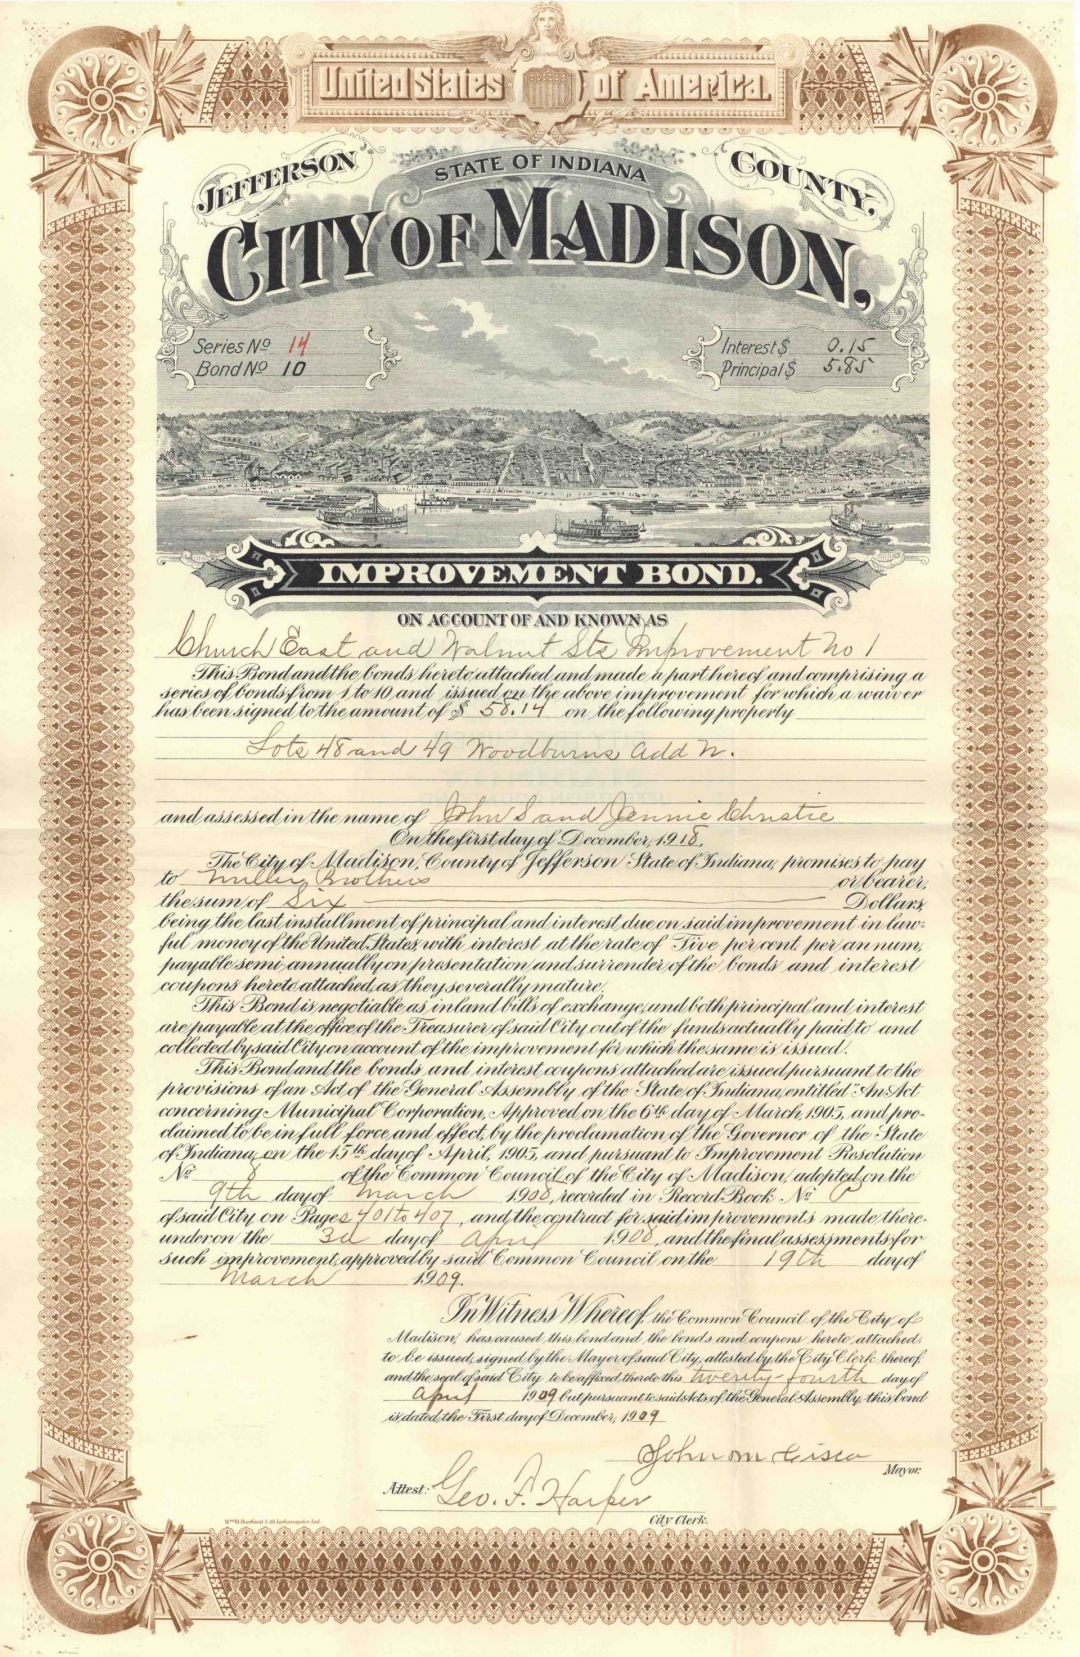 United States of America.
JEFFERSON STATE OF INDIANA COUNTY,
CITY OF MADISON,
Series No 14
Bond No 10
Interest $ 0.15
Principal $ 5.85
IMPROVEMENT BOND.
ON ACCOUNT OF AND KNOWN AS
Church East and Walnut Sts Improvement No 1
This Bond and the bonds hereto attached and made a part hereof and comprising a
series of bonds from 1 to 10 and issued on the above improvement for which a waiver
has been signed to the amount of $ 58.14 on the following property
Lots 48 and 49 Woodburns Add W.
and assessed in the name of John S and Jennie Christie
On the first day of December, 1918,
The City of Madison, County of Jefferson State of Indiana, promises to pay
to Miller Brothers or bearer,
the sum of Six Dollars,
being the last installment of principal and interest due on said improvement in law-
ful money of the United States, with interest at the rate of Five per cent. per annum,
payable semi-annually on presentation and surrender of the bonds and interest
coupons hereto attached, as they severally mature.
This Bond is negotiable as inland bills of exchange, and both principal and interest
are payable at the office of the Treasurer of said City out of the funds actually paid to and
collected by said City on account of the improvement for which the same is issued.
This Bond and the bonds and interest coupons attached are issued pursuant to the
provisions of an Act of the General Assembly of the State of Indiana, entitled "An Act
concerning Municipal Corporation, Approved on the 6th day of March, 1905, and pro-
claimed to be in full force and effect, by the proclamation of the Governor of the State
of Indiana, on the 15th day of April, 1905, and pursuant to Improvement Resolution
No 8 of the Common Council of the City of Madison, adopted on the
9th day of March 1908, recorded in Record Book No
of said City on Pages 401 to 407, and the contract for said improvements made there-
under on the 3d day of April 1908, and the final assessments for
such improvement, approved by said Common Council on the 19th day of
March 1909.
In Witness Whereof, the Common Council of the City of
Madison, has caused this bond and the bonds and coupons hereto attached,
to be issued, signed by the Mayor, of said City, attested by the City Clerk, thereof
and the seal of said City to be affixed thereto this twenty-fourth day of
April 1909 but pursuant to said Acts of the General Assembly this bond
is dated the First day of December, 1909
John M Cisco
Mayor.
Attest: Geo. F. Harper
City Clerk.
Wm B. Burford, Lith Indianapolis Ind.